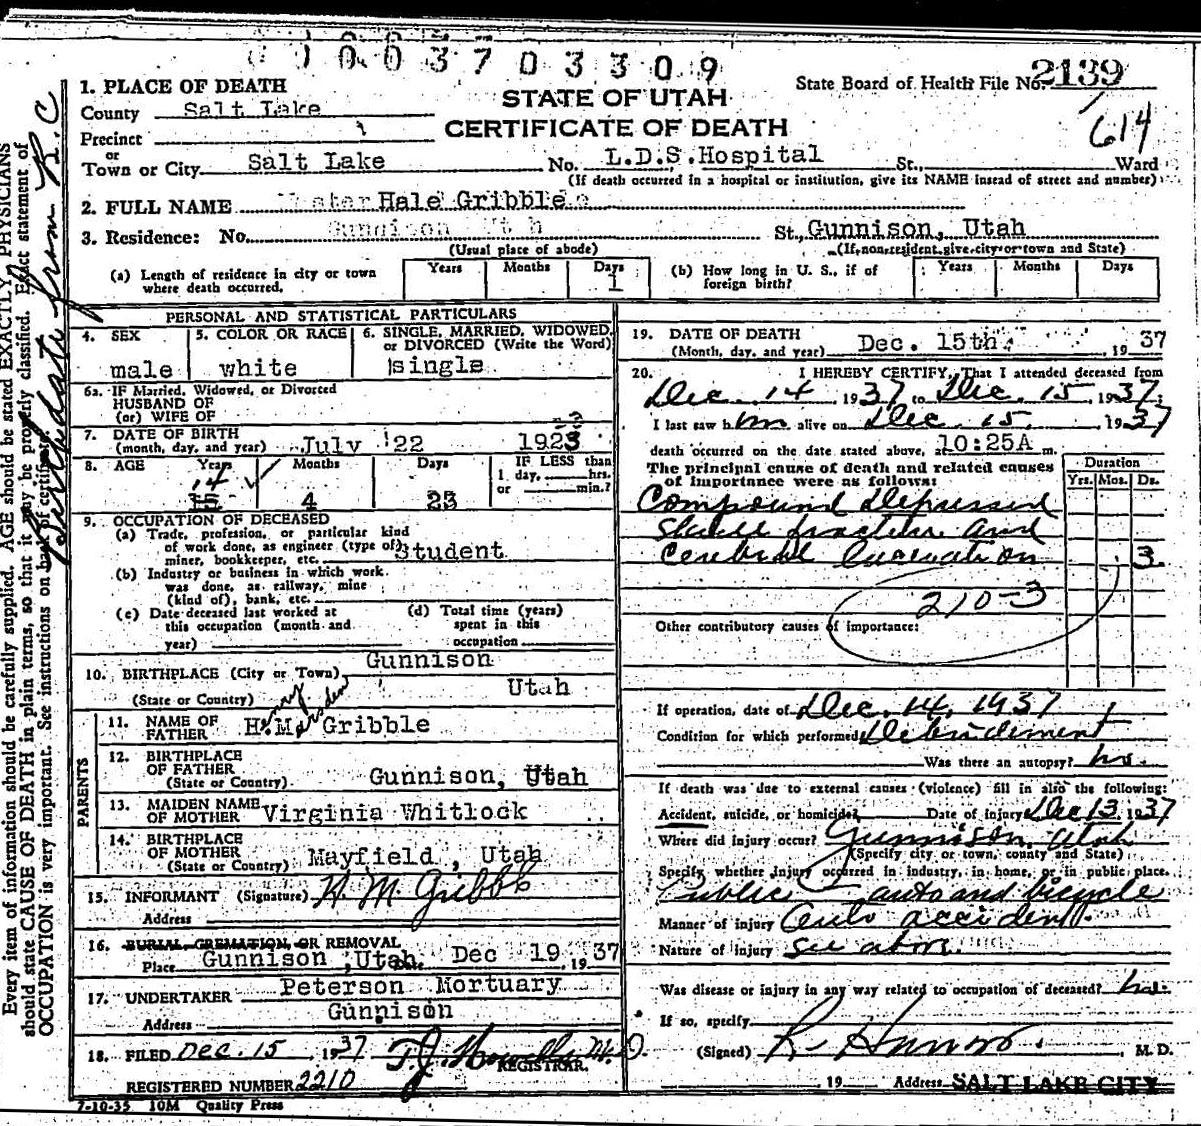 1003703309
1. PLACE OF DEATH
STATE OF UTAH
State Board of Health File No. 2139
County Salt Lake
CERTIFICATE OF DEATH
614
Precinct
or
Town or City Salt Lake No. L.D.S. Hospital St., Ward
(If death occurred in a hospital or institution, give its NAME instead of street and number)
2. FULL NAME Hale Gribble
3. Residence: No. Gunnison Utah St., Gunnison, Utah
(Usual place of abode) (If non-resident, give city or town and State)
(a) Length of residence in city or town where death occurred. Years Months Days 1
(b) How long in U. S., if of foreign birth? Years Months Days
PERSONAL AND STATISTICAL PARTICULARS
4. SEX male
5. COLOR OR RACE white
6. SINGLE, MARRIED, WIDOWED, or DIVORCED (Write the Word) single
6a. IF Married, Widowed, or Divorced
HUSBAND OF
(or) WIFE OF
7. DATE OF BIRTH
(month, day, and year) July 22 1923
8. AGE Years 14 Months 4 Days 23
IF LESS than
1 day, hrs.
or min.?
9. OCCUPATION OF DECEASED
(a) Trade, profession, or particular kind
of work done, as engineer (type of)
miner, bookkeeper, etc. Student
(b) Industry or business in which work
was done, as railway, mine
(kind of), bank, etc.
(c) Date deceased last worked at
this occupation (month and
year)
(d) Total time (years)
spent in this
occupation
10. BIRTHPLACE (City or Town) Gunnison
(State or Country) Utah
PARENTS
11. NAME OF FATHER H. M. Gribble
Henry Marsden
12. BIRTHPLACE
OF FATHER
(State or Country) Gunnison, Utah
13. MAIDEN NAME
OF MOTHER Virginia Whitlock
14. BIRTHPLACE
OF MOTHER
(State or Country) Mayfield, Utah
15. INFORMANT (Signature) H. M. Gribble
Address
16. BURIAL, CREMATION, OR REMOVAL
Place Gunnison, Utah. Dec 19, 1937
17. UNDERTAKER Peterson Mortuary
Address Gunnison
18. FILED Dec. 15, 1937 T. J. Howells M. D.
REGISTRAR.
REGISTERED NUMBER 2210
7-10-35 10M Quality Press
19. DATE OF DEATH
(Month, day, and year) Dec. 15th, 1937
20. I HEREBY CERTIFY, That I attended deceased from
Dec. 14 1937 to Dec. 15, 1937;
I last saw him alive on Dec. 15, 1937
death occurred on the date stated above, at 10:25A m.
The principal cause of death and related causes
of importance were as follows:
Duration
Yrs. Mos. Ds.
Compound depressed
skull fracture and
cerebral laceration 3.
210-3
Other contributory causes of importance:
If operation, date of Dec. 14, 1937
Condition for which performed Debridement
Was there an autopsy? no.
If death was due to external causes (violence) fill in also the following:
Accident, suicide, or homicide? Date of injury Dec 13, 1937
Where did injury occur? Gunnison, Utah
(Specify city or town, county and State)
Specify whether injury occurred in industry, in home, or in public place.
Public auto and bicycle
Manner of injury Auto accident.
Nature of injury see above.
Was disease or injury in any way related to occupation of deceased? no.
If so, specify
(Signed) M. D.
, 19 Address SALT LAKE CITY
Every item of information should be carefully supplied. AGE should be stated EXACTLY. PHYSICIANS
should state CAUSE OF DEATH in plain terms, so that it may be properly classified. Exact statement of
OCCUPATION is very important. See instructions on back of certificate.